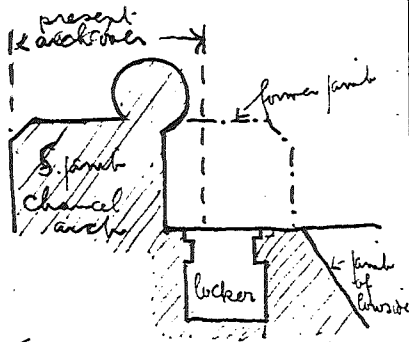 present
arch over
former jamb
S. jamb
chancel
arch
locker
jamb
of
lowside